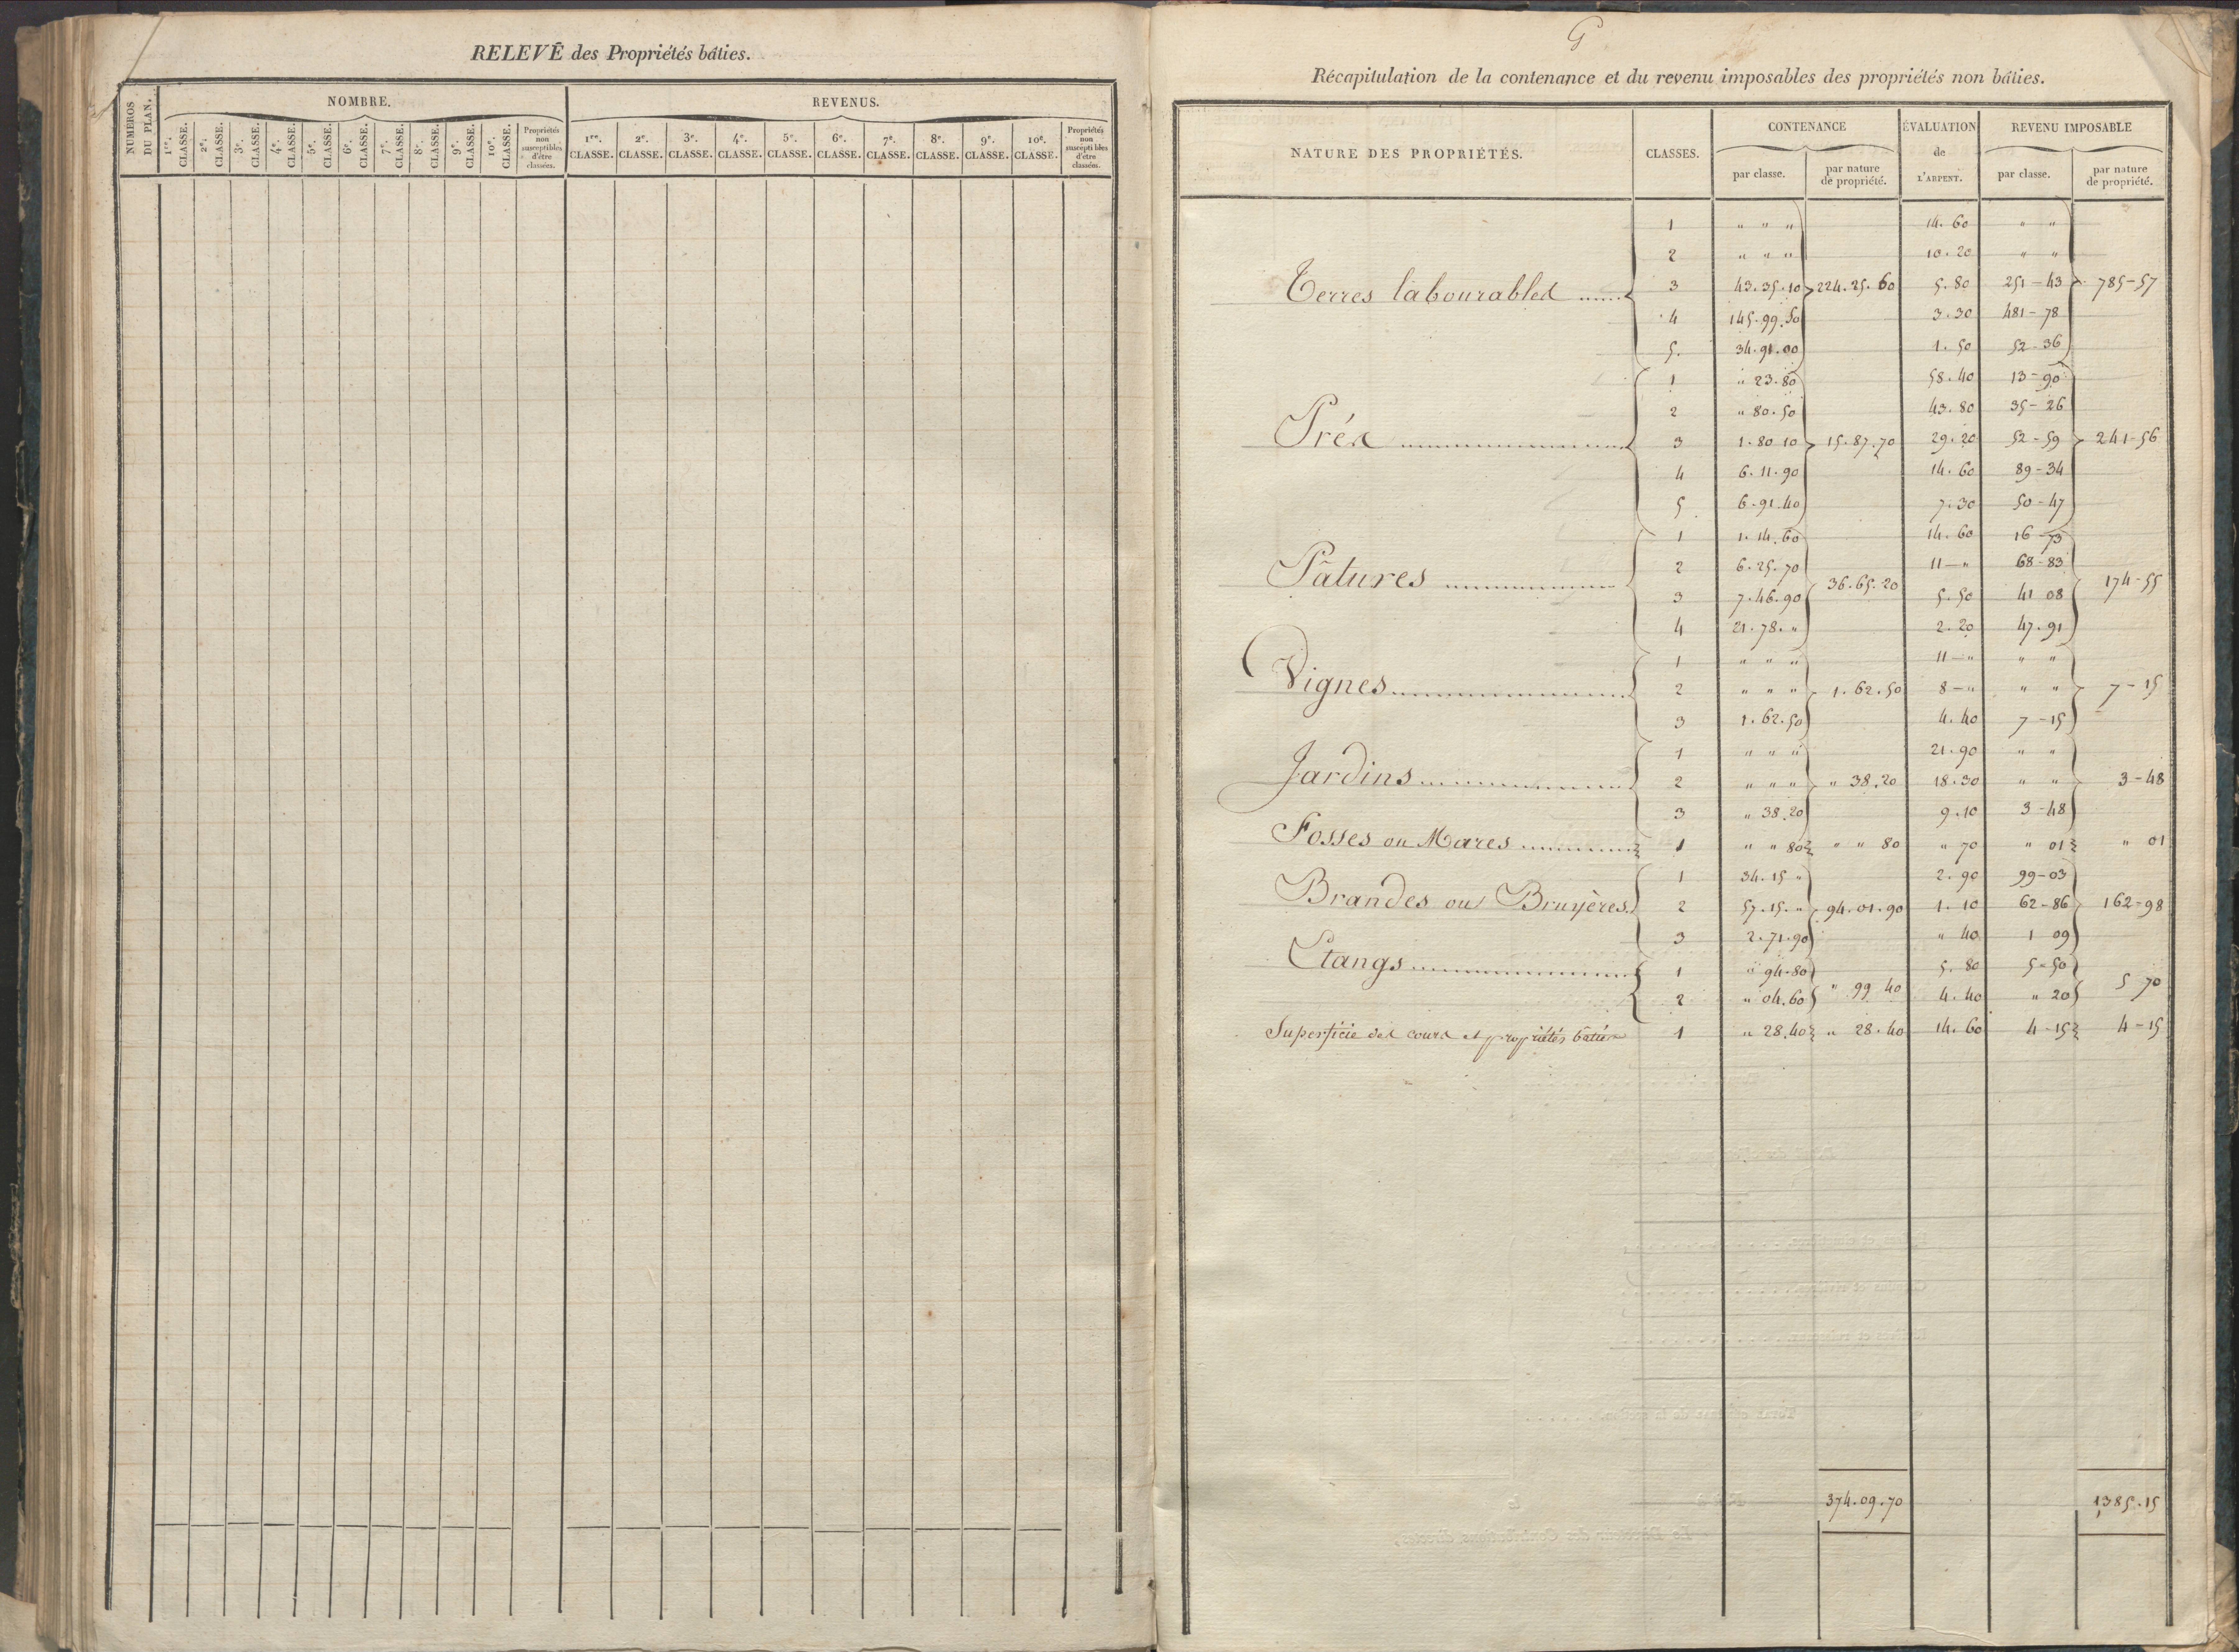 RELEVÉ des Propriétés bâties.
NUMEROS DU PLAN.
NOMBRE.
REVENUS.
1re. CLASSE. 2e. CLASSE. 3e. CLASSE. 4e. CLASSE. 5e. CLASSE. 6e. CLASSE. 7e. CLASSE. 8e. CLASSE. 9e. CLASSE. 10e. CLASSE. Propriétés non susceptibles d'être classées.
1re. CLASSE. 2e. CLASSE. 3e. CLASSE. 4e. CLASSE. 5e. CLASSE. 6e. CLASSE. 7e. CLASSE. 8e. CLASSE. 9e. CLASSE. 10e. CLASSE. Propriétés non suscepti bles d'être classées.
G
Récapitulation de la contenance et du revenu imposables des propriétés non bâties.
NATURE DES PROPRIÉTÉS. CLASSES. CONTENANCE ÉVALUATION de L'ARPENT. REVENU IMPOSABLE
par classe. par nature de propriété. par classe. par nature de propriété.
1 " " " 14.60 " "
2 " " " 10.20 " "
Terres labourables 3 43.35.10 224.25.60 5.80 251-43 785-57
4 145.99.50 3.30 481-78
5. 34.91.00 1.50 52-36
1 " 23.80 58.40 13-90
2 " 80.50 43.80 35-26
Prés 3 1.80 10 15.87.70 29.20 52-59 241-56
4 6.11.90 14.60 89-34
5 6.91.40 7.30 50-47
1 1.14.60 14.60 16-73
2 6.25.70 11-" 68-83
Pâtures 36.65.20 174-55
3 7.46.90 5.50 41 08
4 21.78." 2.20 47.91
1 " " " 11-" " "
Vignes 2 " " " 1.62.50 8-" " " 7-15
3 1.62.50 4.40 7-15
1 " " " 21.90 " "
Jardins 2 " " " " 38.20 18.30 " " 3-48
3 " 38.20 9.10 3-48
Fosses ou Mares 1 " " 80 " " 80 " 70 " 01 " 01
1 34.15 " 2.90 99-03
Brandes ou Bruyères 2 57.15." 94.01.90 1.10 62-86 162-98
3 2.71.90 " 40 1 09
Etangs 1 " 94.80 5.80 5-50
2 " 04.60 " 99 40 4.40 " 20 5 70
Superficie des cours et propriétés bâties 1 " 28.40 " 28.40 14.60 4-15 4-15
374.09.70 1385.15